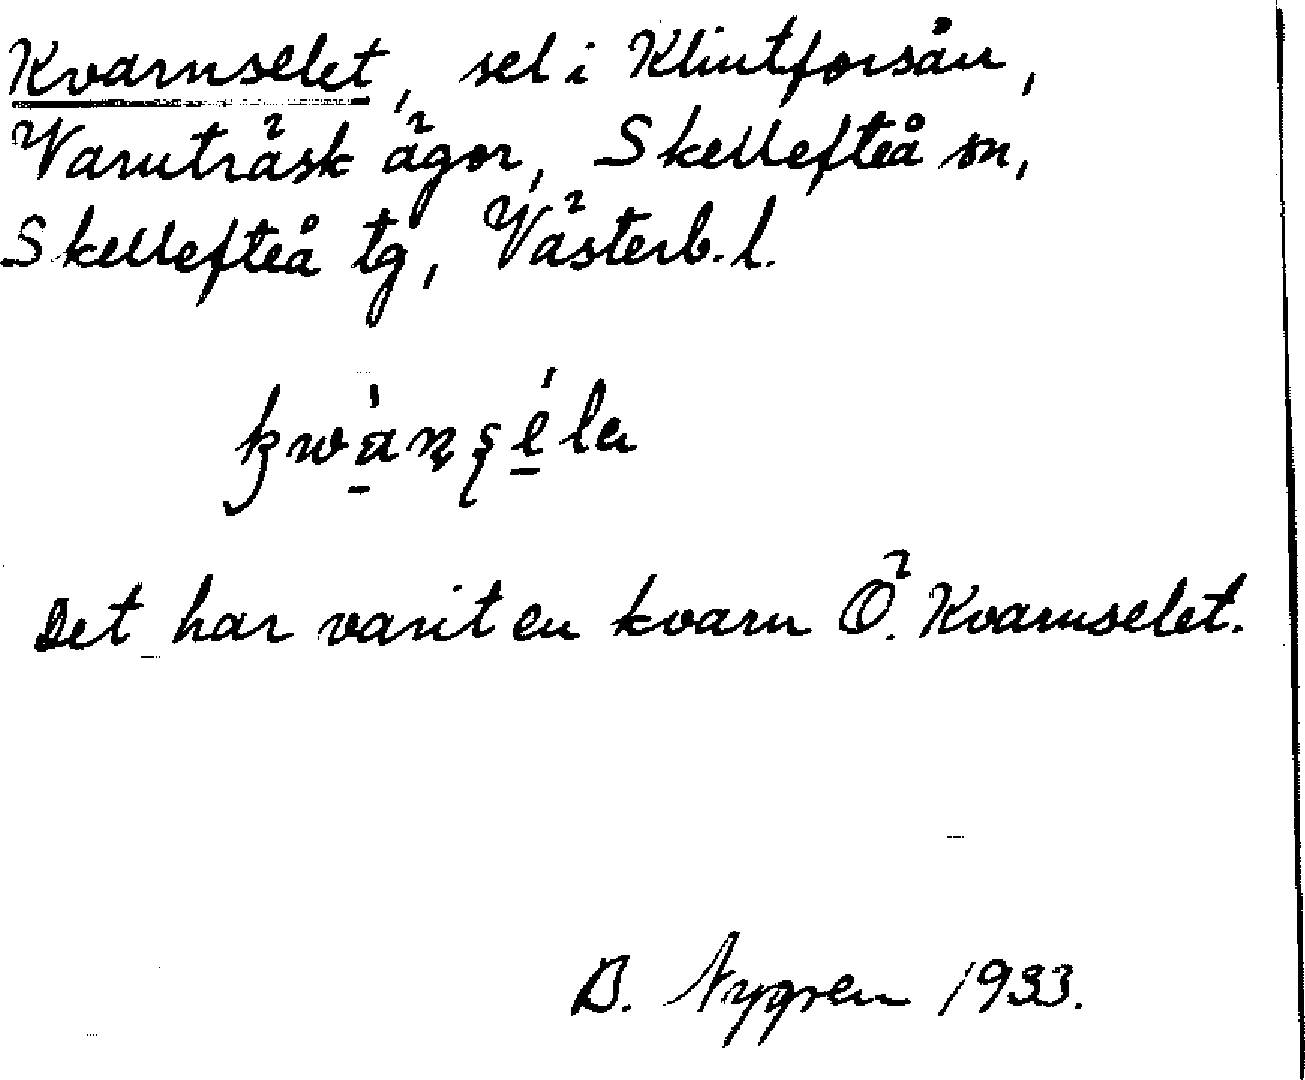 Kvarnselet, sel i Klintforsån,
Varuträsk ägor, Skellefteå sn,
Skellefteå tg, Västerb. l.
kwànséla
Det har varit en kvarn Ö. Kvarnselet.
B. Nygren 1933.